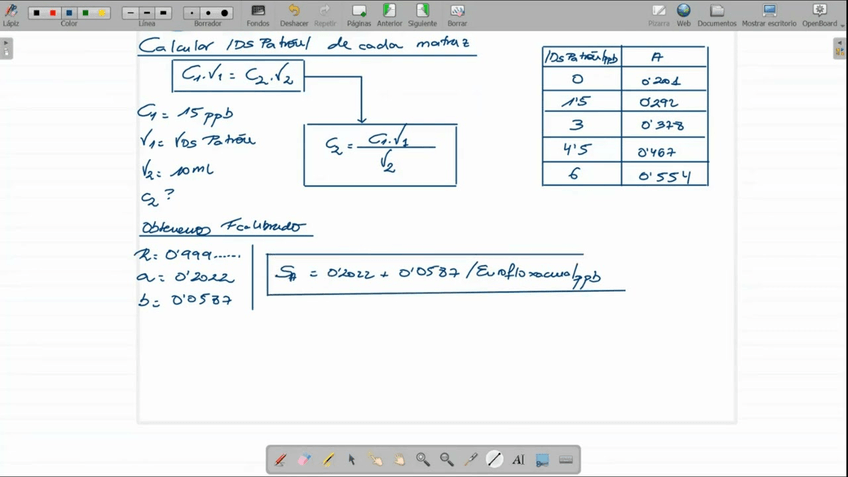 Lápiz
Color
Línea
Borrador
Fondos
Deshacer
Repetir
Páginas
Anterior
Siguiente
Borrar
Pizarra
Web
Documentos
Mostrar escritorio
OpenBoard
Calcular /Ds Patrón/ de cada matraz
C1·V1 = C2·V2
C1 = 15 ppb
V1 = VDs Patrón
V2 = 10 ml
C2 ?
C2 = C1·V1
V2
/Ds Patrón/ppb A
0 0'201
1'5 0'292
3 0'378
4'5 0'467
6 0'554
Obtenemos F calibrado
R = 0'999......
a = 0'2022
b = 0'0587
SA = 0'2022 + 0'0587 /Enrofloxacino/ppb
AI